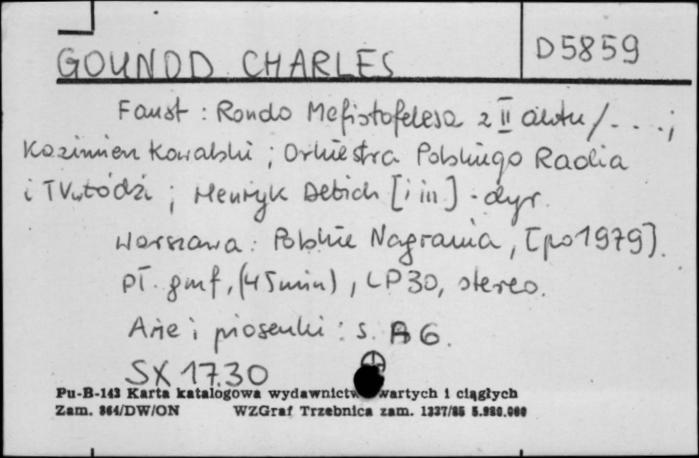 GOUNOD CHARLES
D5859
Faust : Rondo Mefistofelesa z II aktu / . . . ;
Kazimierz Kowalski ; Orkiestra Polskiego Radia
i TV w Łodzi ; Henryk Debich [i in] . dyr.
Warszawa : Polskie Nagrania, [po 1979].
pł. gmf, (45 min), LP 30, stereo.
Arie i piosenki : s. A 6.
SX 1730
Pu-B-143 Karta katalogowa wydawnictw wartych i ciągłych
Zam. 864/DW/ON WZGraf Trzebnica zam. 1337/85 5.980.000